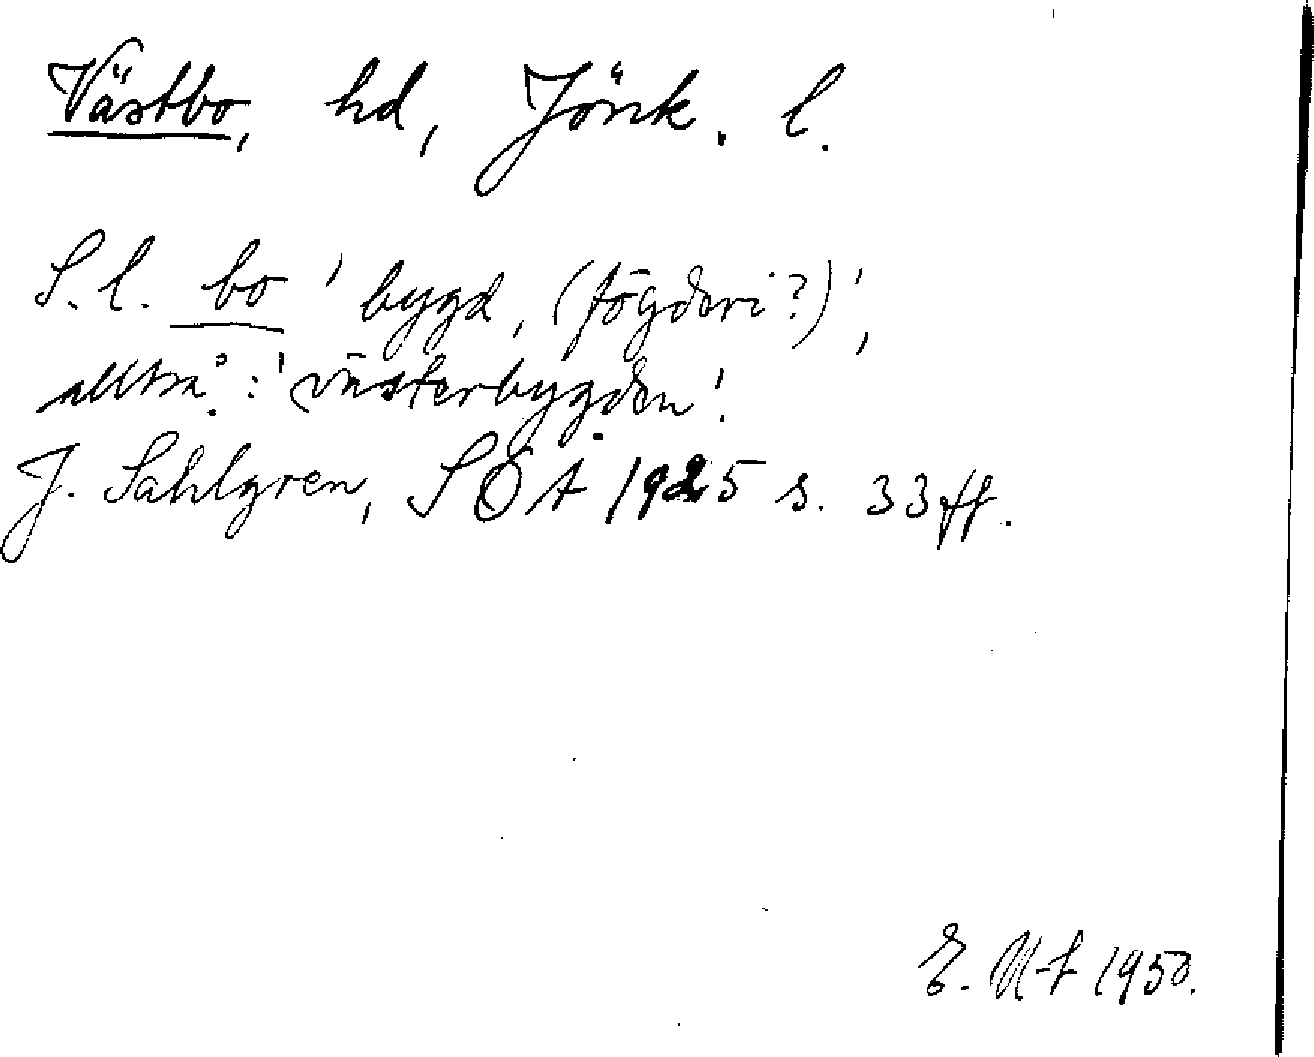 Västbo, hd, Jönk. l.
S.l. bo 'bygd, (fögderi?)',
alltså: 'västerbygden'.
J. Sahlgren, SOÅ 1925 s. 33 ff.
E. 1950.